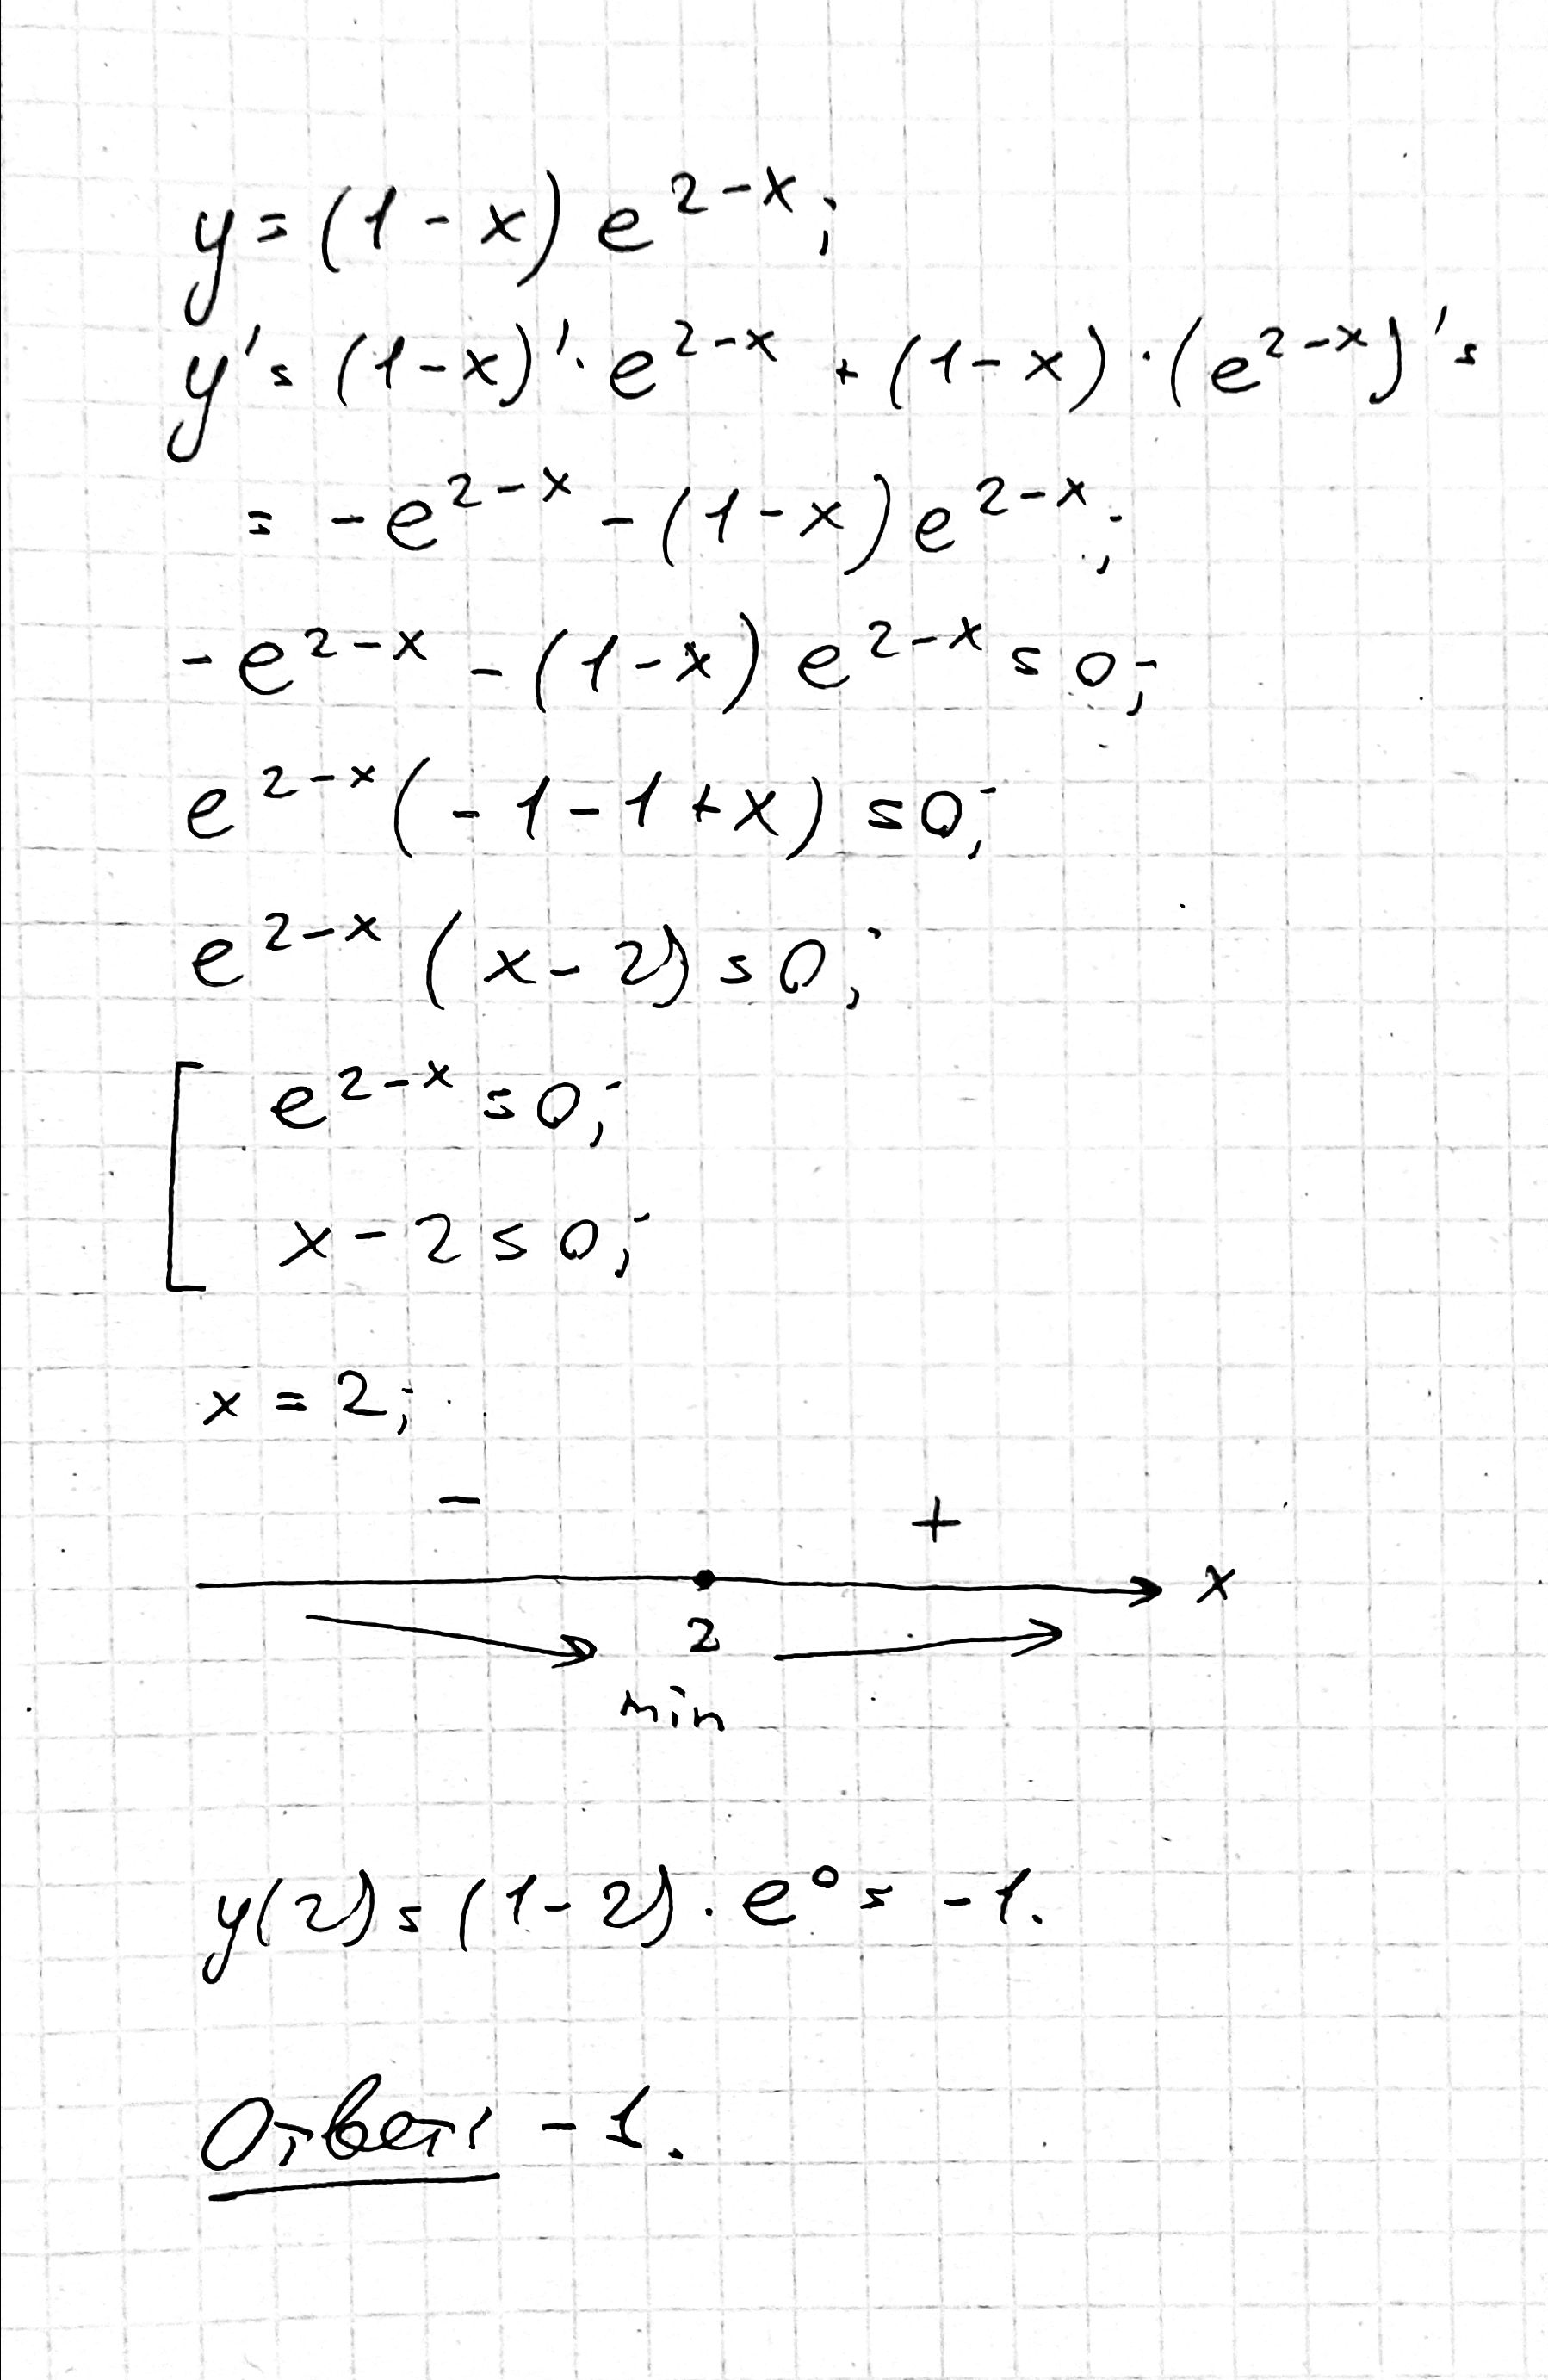 y = (1 - x) e^{2-x};
y' = (1-x)' · e^{2-x} + (1-x) · (e^{2-x})' =
= -e^{2-x} - (1-x) e^{2-x};
-e^{2-x} - (1-x) e^{2-x} = 0;
e^{2-x} (-1-1+x) = 0;
e^{2-x} (x-2) = 0;
[ e^{2-x} = 0;
x-2 = 0;
x = 2;
- +
x
2
min
y(2) = (1-2) · e^0 = -1.
Ответ: -1.